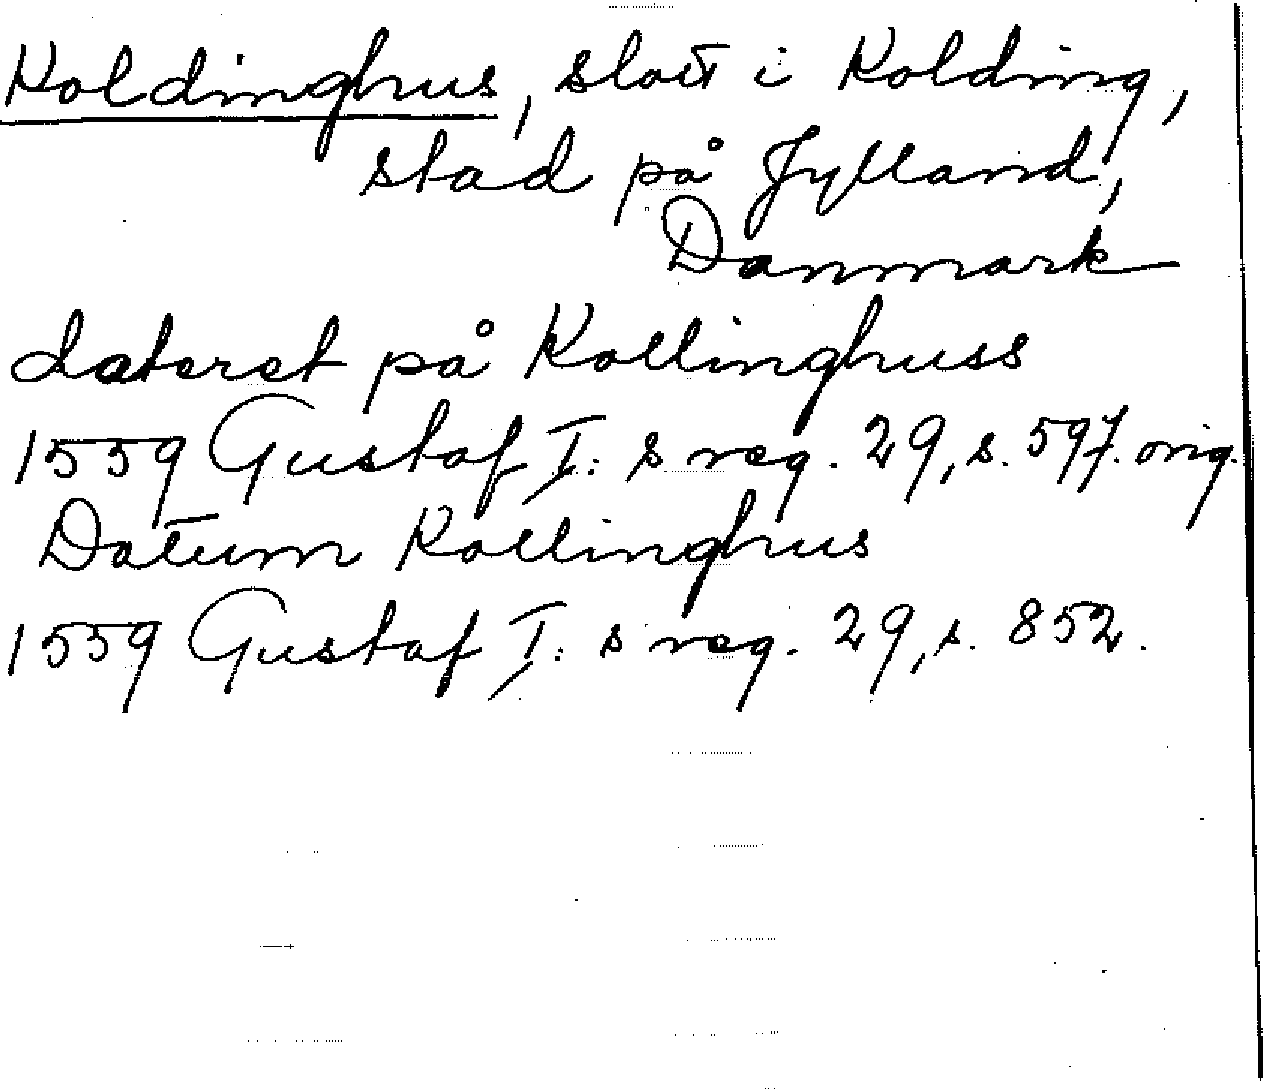 Koldinghus, slott i Kolding,
stad på Jylland,
Danmark
dateret på Kollinghuss
1559 Gustaf I:s reg. 29, s. 597. orig.
Datum Kollinghus
1559 Gustaf I:s reg. 29, s. 852.